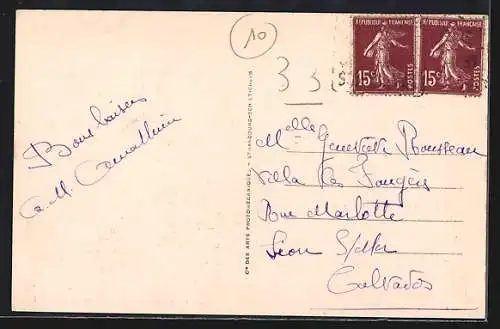 10
335
RÉPUBLIQUE FRANÇAISE
15c POSTES
RÉPUBLIQUE FRANÇAISE
15c POSTES
Bons baisers
Cie DES ARTS PHOTOMÉCANIQUES - STRASBOURG-SCHILTIGHEIM
Mlle Geneviève Rousseau
Villa les Fougères
Rue Marlotte
Lion S/Mer
Calvados